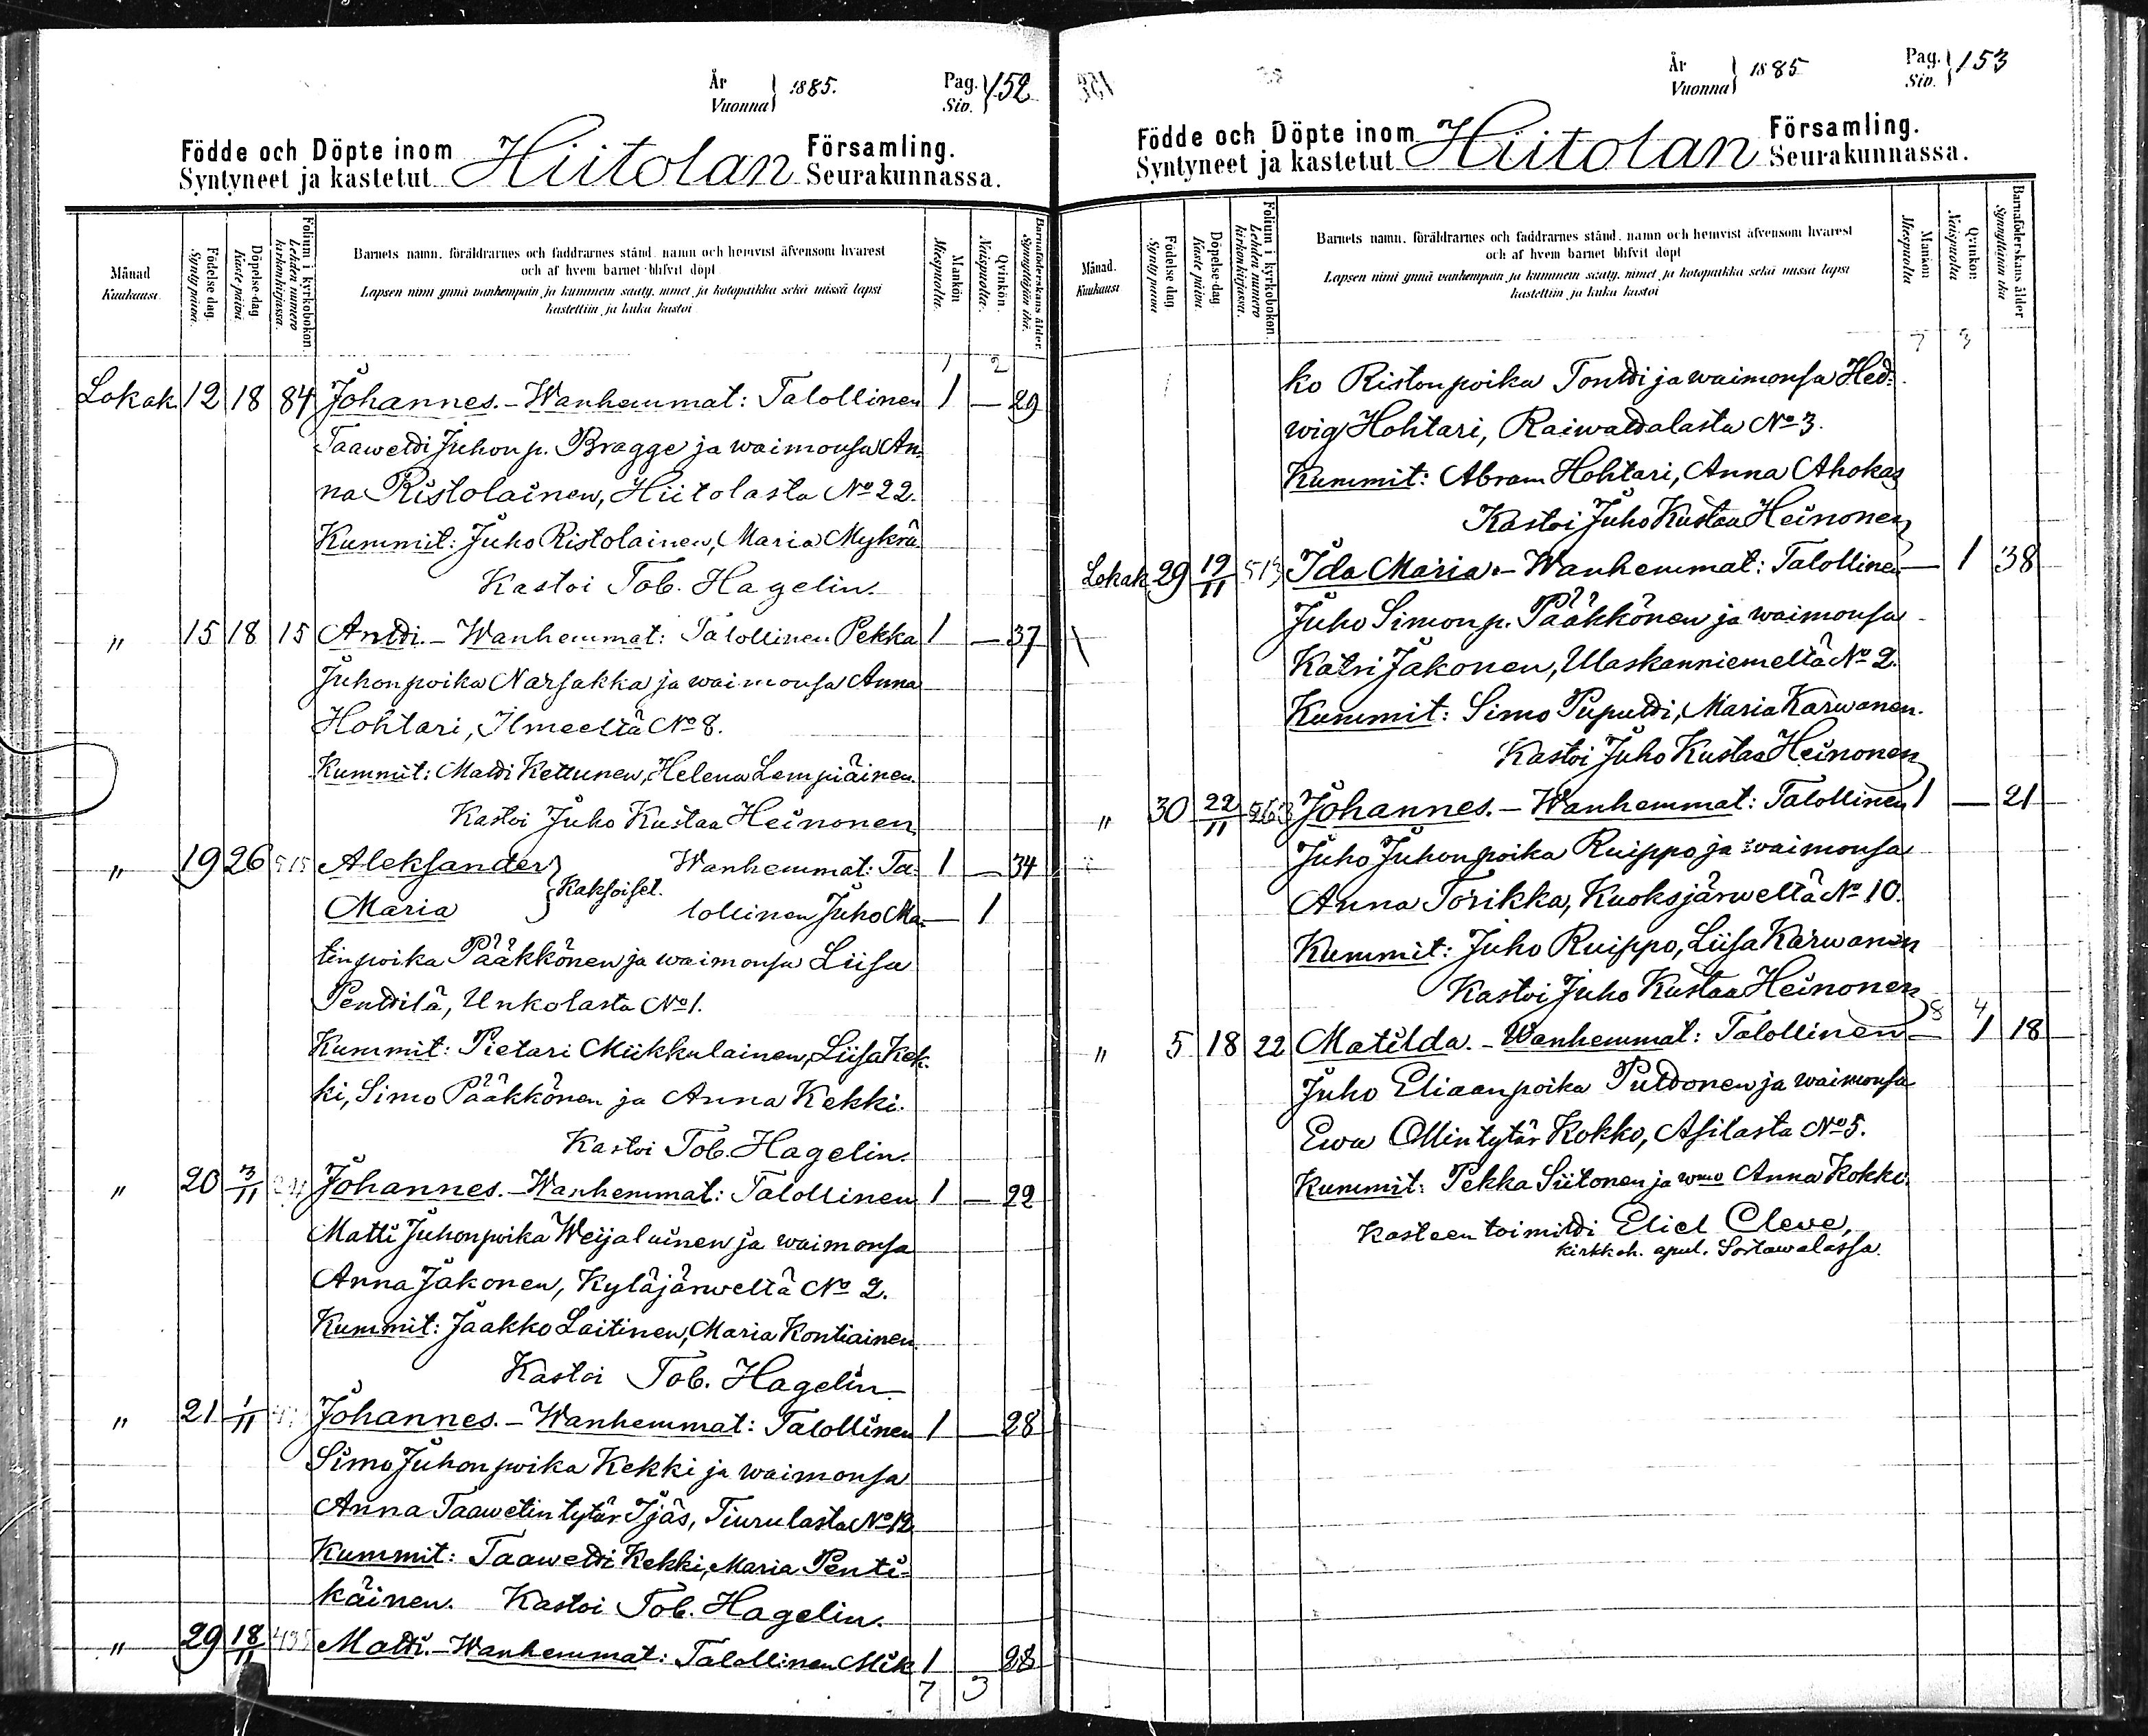 År
Vuonna } 1885.
Pag.
Siv. } 152
Födde och Döpte inom Hiitolan Församling.
Syntyneet ja kastetut Seurakunnassa.
Månad
Kuukausi.
Födelse dag.
Syntypäivä.
Döpelse-dag
Kaste päivä.
Folium i kyrkoboken.
Lehden numero
kirkonkirjassa.
Barnets namn, föräldrarnes och faddrarnes stånd, namn och hemvist äfvensom hvarest
och af hvem barnet blifvit döpt
Lapsen nimi ynnä vanhempain ja kummein sääty, nimet ja kotopaikka sekä missä lapsi
kastettiin ja kuka kastoi
Mankön
Miespuolia.
Qvinkön.
Naispuolia.
Barnaföderskans ålder.
Synnyttäjän ikä.
1 2
Lokak. 12 18 84 Johannes. - Wanhemmat: Talollinen 1 — 29
Taawetti Juhon p. Bragge ja waimonsa An-
na Ristolainen, Hiitolasta No 22.
Kummit: Juho Ristolainen, Maria Mykrä.
Kastoi Tob. Hagelin.
" 15 18 15 Antti. - Wanhemmat: Talollinen Pekka 1 — 37
Juhonpoika Narsakka ja waimonsa Anna
Hohtari, Ilmeeltä No 8.
Kummit: Matti Kettunen, Helena Lempiäinen.
Kastoi Juho Kustaa Heinonen
" 19 26 515 Aleksander } Wanhemmat: Ta- 1 — 34
Kaksoiset.
Maria } lollinen Juho Ma- — 1
tinpoika Pääkkönen ja waimonsa Liisa
Penttilä, Unkolasta No 1.
Kummit: Pietari Miikkulainen, Liisa Kek-
ki, Simo Pääkkönen ja Anna Kekki.
Kastoi Tob. Hagelin.
" 20 3/11 Johannes. - Wanhemmat: Talollinen 1 — 22
Matti Juhonpoika Weijalainen ja waimonsa
Anna Jakonen, Kyläjärweltä No 2.
Kummit: Jaakko Laitinen, Maria Kontiainen.
Kastoi Tob. Hagelin.
" 21 1/11 Johannes. - Wanhemmat: Talollinen 1 — 28
Simo Juhonpoika Kekki ja waimonsa
Anna Taawetin tytär Ijäs, Tiurulasta No 12
Kummit: Taawetti Kekki, Maria Penti-
käinen. Kastoi Tob. Hagelin.
" 29 18/11 435 Matti. - Wanhemmat: Talollinen Mik 1 28
7 3
År
Vuonna } 1885
Pag.
Siv. } 153
Födde och Döpte inom Hiitolan Församling.
Syntyneet ja kastetut Seurakunnassa.
Månad.
Kuukausi
Födelse dag
Synty päivä
Döpelse-dag
Kaste päivä.
Folium i kyrkoboken.
Lehden numero
kirkonkirjassa.
Barnets namn, föräldrarnes och faddrarnes stånd, namn och hemvist äfvensom hvarest
och af hvem barnet blifvit döpt
Lapsen nimi ynnä vanhempain ja kummein sääty, nimet ja kotopaikka sekä missä lapsi
kastettiin ja kuka kastoi
Mankön
Miespuolia
Qvinkön:
Naispuolia.
Barnaföderskans ålder
Synnyttäjän ikä
7 3
ko Ristonpoika Tontti ja waimonsa Hed-
wig Hohtari, Raiwattalasta No 3.
Kummit: Abram Hohtari, Anna Ahokas
Kastoi Juho Kustaa Heinonen
Lokak 29 19/11 513 Ida Maria. - Wanhemmat: Talollinen — 1 38
Juho Simon p. Pääkkönen ja waimonsa
Katri Jakonen, Ulaskanniemeltä No 2.
Kummit: Simo Puputti, Maria Karwanen.
Kastoi Juho Kustaa Heinonen
" 30 22/11 263 Johannes. - Wanhemmat: Talollinen 1 — 21
Juho Juhonpoika Ruippo ja waimonsa
Anna Torikka, Kuoksjärweltä No 10.
Kummit: Juho Ruippo, Liisa Karwanen
Kastoi Juho Kustaa Heinonen
8 4
" 5 18 22 Matilda. - Wanhemmat: Talollinen — 1 18
Juho Eliaanpoika Puttonen ja waimonsa
Ewa Ollin tytär Kokko, Asilasta No 5.
Kummit: Pekka Siitonen ja wmo Anna Kokki.
Kasteen toimitti Eliel Cleve,
kirkkoh. apul. Sortawalassa.